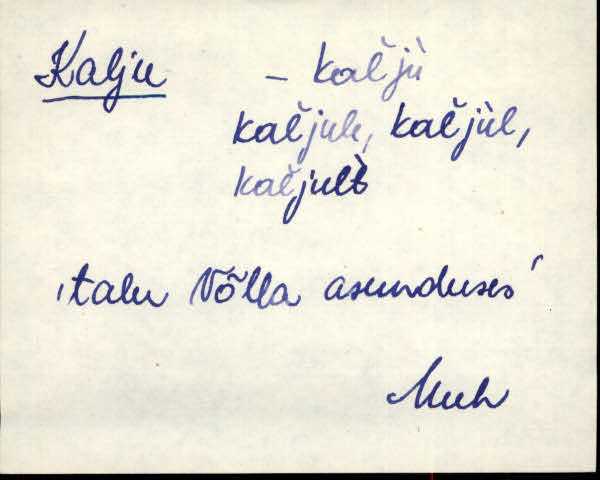 Kalju – kaľjù
kaľjule, kaľjùl,
kaľjult̀
'talu Võlla asunduses'
Muh